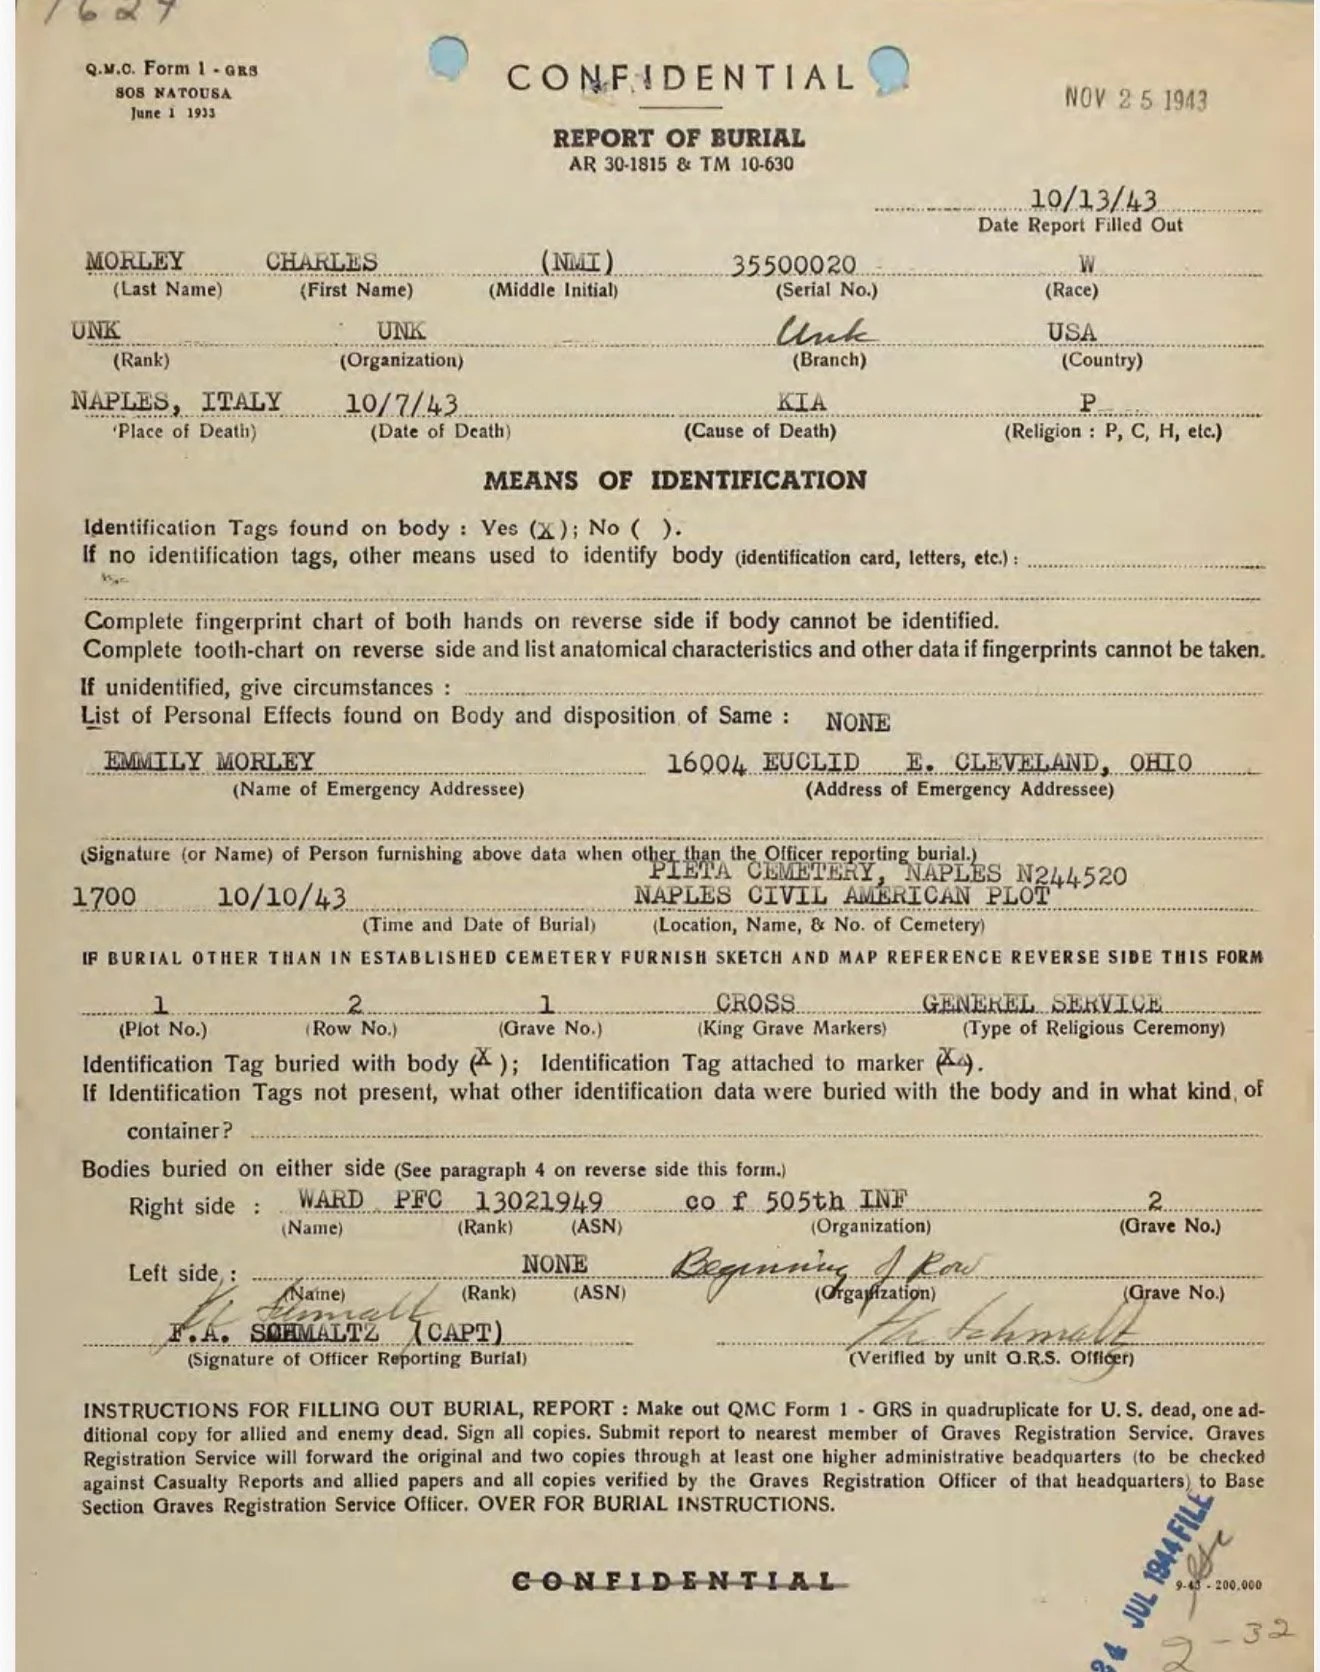 1627
Q.M.C. Form 1 - GRS
SOS NATOUSA
June 1 1933
CONFIDENTIAL
NOV 25 1943
REPORT OF BURIAL
AR 30-1815 & TM 10-630
10/13/43
Date Report Filled Out
MORLEY CHARLES (NMI) 35500020 W
(Last Name) (First Name) (Middle Initial) (Serial No.) (Race)
UNK UNK Unk USA
(Rank) (Organization) (Branch) (Country)
NAPLES, ITALY 10/7/43 KIA P
(Place of Death) (Date of Death) (Cause of Death) (Religion : P, C, H, etc.)
MEANS OF IDENTIFICATION
Identification Tags found on body : Yes (X); No ( ).
If no identification tags, other means used to identify body (identification card, letters, etc.) :
Complete fingerprint chart of both hands on reverse side if body cannot be identified.
Complete tooth-chart on reverse side and list anatomical characteristics and other data if fingerprints cannot be taken.
If unidentified, give circumstances :
List of Personal Effects found on Body and disposition of Same : NONE
EMMILY MORLEY 16004 EUCLID E. CLEVELAND, OHIO
(Name of Emergency Addressee) (Address of Emergency Addressee)
(Signature (or Name) of Person furnishing above data when other than the Officer reporting burial.)
PIETA CEMETERY, NAPLES N244520
1700 10/10/43 NAPLES CIVIL AMERICAN PLOT
(Time and Date of Burial) (Location, Name, & No. of Cemetery)
IF BURIAL OTHER THAN IN ESTABLISHED CEMETERY FURNISH SKETCH AND MAP REFERENCE REVERSE SIDE THIS FORM
1 2 1 CROSS GENEREL SERVICE
(Plot No.) (Row No.) (Grave No.) (King Grave Markers) (Type of Religious Ceremony)
Identification Tag buried with body (X); Identification Tag attached to marker (X).
If Identification Tags not present, what other identification data were buried with the body and in what kind of
container?
Bodies buried on either side (See paragraph 4 on reverse side this form.)
Right side : WARD PFC 13021949 co f 505th INF 2
(Name) (Rank) (ASN) (Organization) (Grave No.)
Left side : NONE Beginning of Row
(Name) (Rank) (ASN) (Organization) (Grave No.)
F.A. SCHMALTZ (CAPT)
(Signature of Officer Reporting Burial) (Verified by unit G.R.S. Officer)
INSTRUCTIONS FOR FILLING OUT BURIAL, REPORT : Make out QMC Form 1 - GRS in quadruplicate for U. S. dead, one ad-
ditional copy for allied and enemy dead. Sign all copies. Submit report to nearest member of Graves Registration Service. Graves
Registration Service will forward the original and two copies through at least one higher administrative beadquarters (to be checked
against Casualty Reports and allied papers and all copies verified by the Graves Registration Officer of that headquarters) to Base
Section Graves Registration Service Officer. OVER FOR BURIAL INSTRUCTIONS.
CONFIDENTIAL
24 JUL 1944 FILE
9-43 - 200.000
2-32